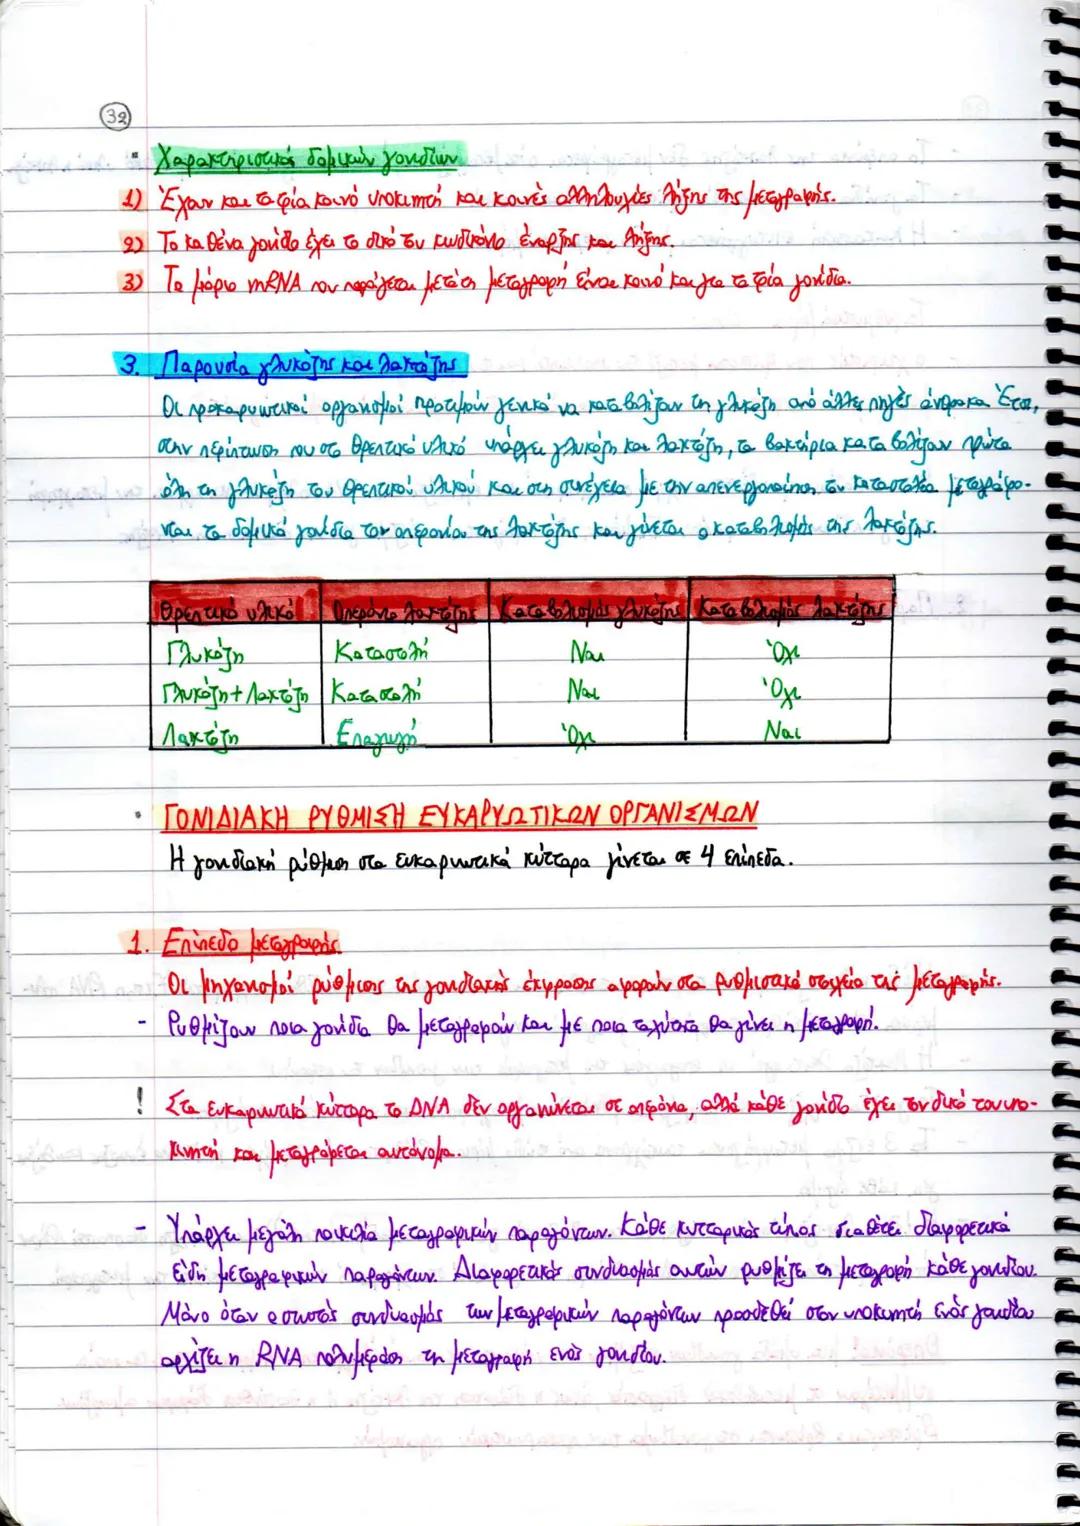 32
Χαρακτηριστικά δομικών γονιδίων
1) Έχουν και τα τρία κοινό υποκινητή και κοινές αλληλουχίες λήξης της μεταγραφής.
2) Το καθένα γονίδιο έχει το δικό του κωδικόνιο έναρξης και λήξης.
3) Το μόριο mRNA που παράγεται μετά τη μεταγραφή είναι κοινό και για τα τρία γονίδια.
3. Παρουσία γλυκόζης και λακτόζης
Οι προκαρυωτικοί οργανισμοί προτιμούν γενικά να καταβολίζουν τη γλυκόζη από άλλες πηγές άνθρακα. Έτσι,
στην περίπτωση που στο θρεπτικό υλικό υπάρχει γλυκόζη και λακτόζη, τα βακτήρια καταβολίζουν πρώτα
όλη τη γλυκόζη του θρεπτικού υλικού και στη συνέχεια με την απενεργοποίηση του καταστολέα μεταγράφο-
νται τα δομικά γονίδια του οπερονίου της λακτόζης και γίνεται ο καταβολισμός της λακτόζης.
Θρεπτικό υλικό Οπερόνιο λακτόζης Καταβολισμός γλυκόζης Καταβολισμός λακτόζης
Γλυκόζη Καταστολή Ναι Όχι
Γλυκόζη + Λακτόζη Καταστολή Ναι Όχι
Λακτόζη Επαγωγή Όχι Ναι
• ΓΟΝΙΔΙΑΚΗ ΡΥΘΜΙΣΗ ΕΥΚΑΡΥΩΤΙΚΩΝ ΟΡΓΑΝΙΣΜΩΝ
Η γονιδιακή ρύθμιση στα ευκαρυωτικά κύτταρα γίνεται σε 4 επίπεδα.
1. Επίπεδο μεταγραφής
Οι μηχανισμοί ρύθμισης της γονιδιακής έκφρασης αφορούν στα ρυθμιστικά στοιχεία της μεταγραφής.
- Ρυθμίζουν ποια γονίδια θα μεταγραφούν και με ποια ταχύτητα θα γίνει η μεταγραφή.
! Στα ευκαρυωτικά κύτταρα το DNA δεν οργανώνεται σε οπερόνια, αλλά κάθε γονίδιο έχει τον δικό του υπο-
κινητή και μεταγράφεται αυτόνομα.
- Υπάρχει μεγάλη ποικιλία μεταγραφικών παραγόντων. Κάθε κυτταρικός τύπος διαθέτει διαφορετικά
είδη μεταγραφικών παραγόντων. Διαφορετικός συνδυασμός αυτών ρυθμίζει τη μεταγραφή κάθε γονιδίου.
Μόνο όταν ο σωστός συνδυασμός των μεταγραφικών παραγόντων προσδεθεί στον υποκινητή ενός γονιδίου
αρχίζει η RNA πολυμεράση τη μεταγραφή ενός γονιδίου.